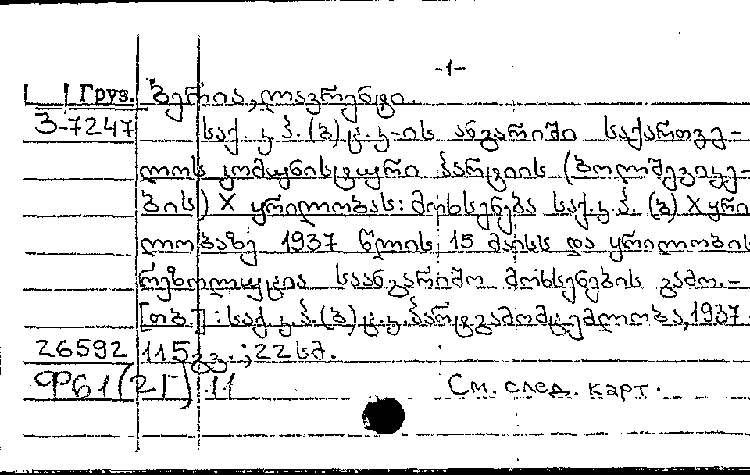 -1-
Груз. ბერია, ლავრენტი.
3-7247 საქ. კ. პ. (ბ) ც. კ-ის ანგარიში საქართვე-
ლოს კომუნისტური პარტიის (ბოლშევიკე-
ბის) X ყრილობას: მოხსენება საქ. კ. პ. (ბ) X ყრი
ლობაზე 1937 წლის 15 მაისს და ყრილობის
რეზოლუცია საანგარიშო მოხსენების გამო.-
[თბ.]: საქ. კ. პ. (ბ) ც. კ. პარტგამომცემლობა, 1937.
26592 115 გვ.; 22 სმ.
Ф61(2Г) 11 См. след. карт.